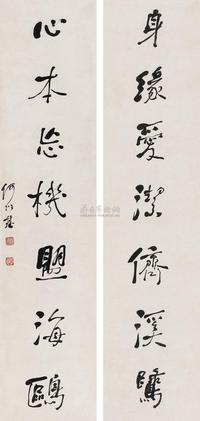 身緣愛潔儕溪鷺
心本忘機盟海鷗
何